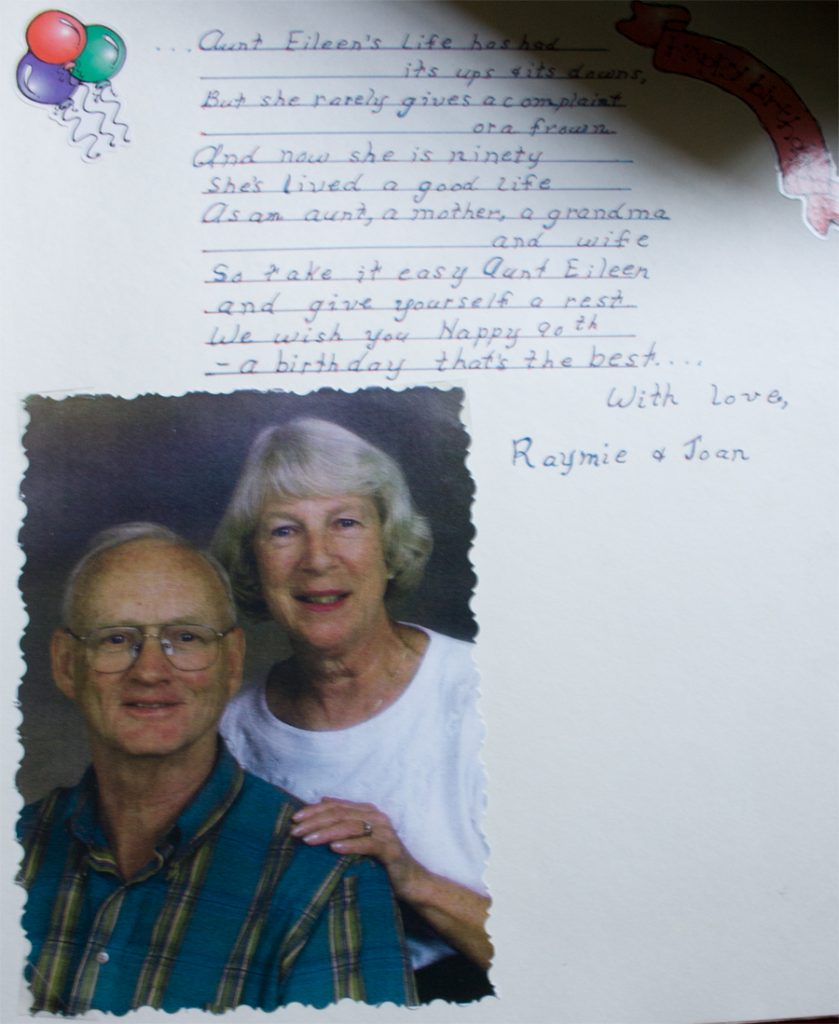 ...Aunt Eileen's Life has had
its ups & its downs,
But she rarely gives a complaint
or a frown
And now she is ninety
She's lived a good life
As an aunt, a mother, a grandma
and wife
So take it easy Aunt Eileen
and give yourself a rest
We wish you Happy 90th
- a birthday that's the best....
With love,
Raymie & Joan
Happy birthday